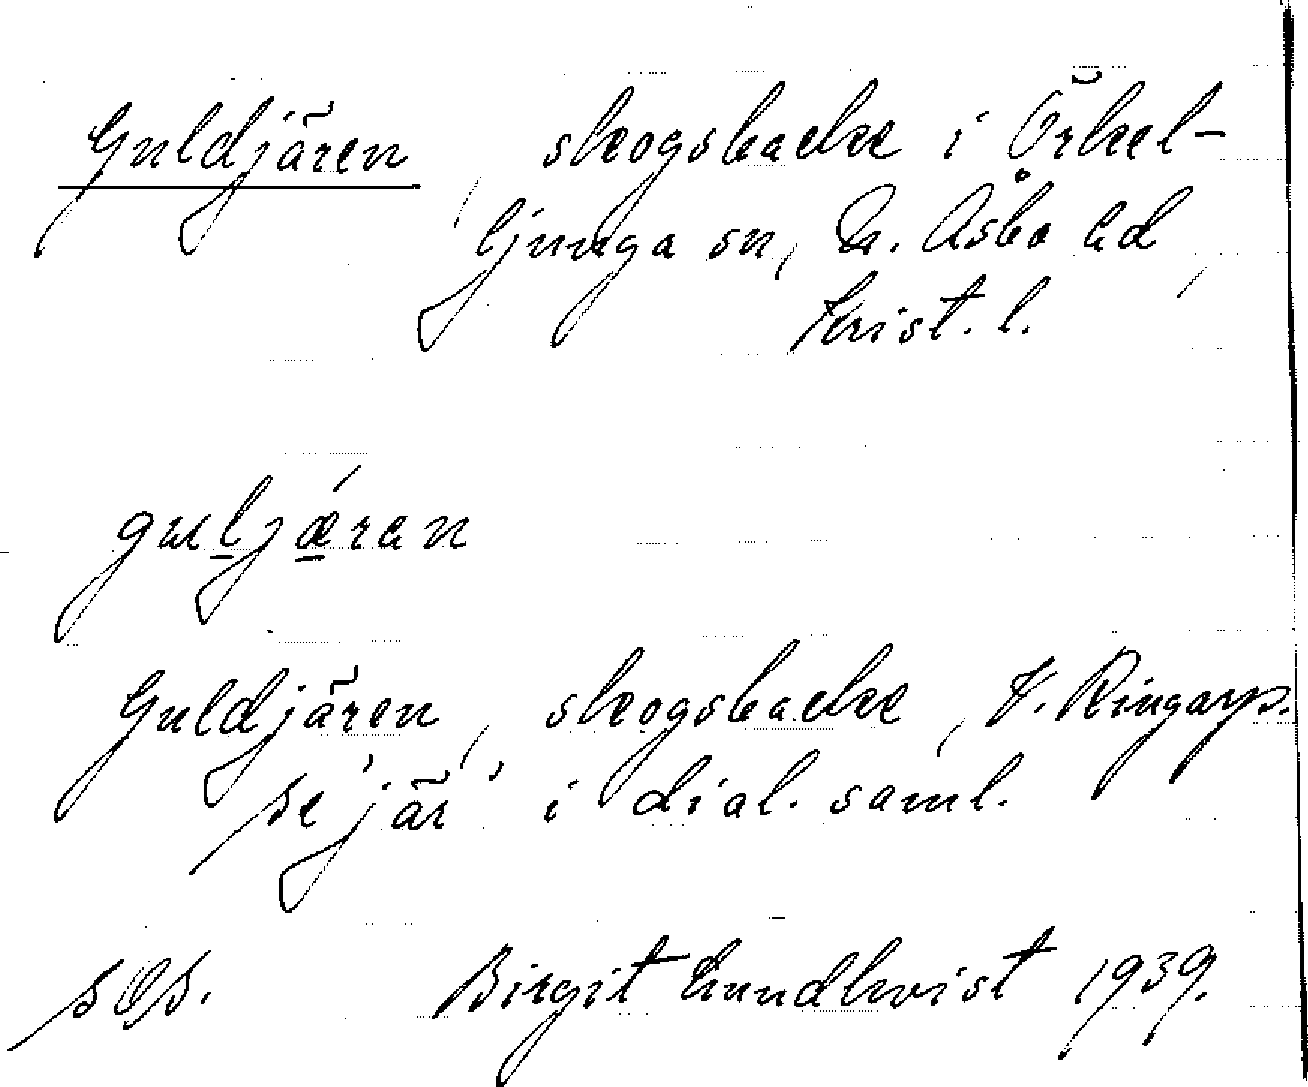 Guldjären, skogsbacke i Örkel-
ljunga sn, N. Åsbo hd,
Krist. l.
guljǽran
Guldjären, skogsbacke, V. Ringarp.
se 'jär' i dial. saml.
Birgit Lundkvist 1939.